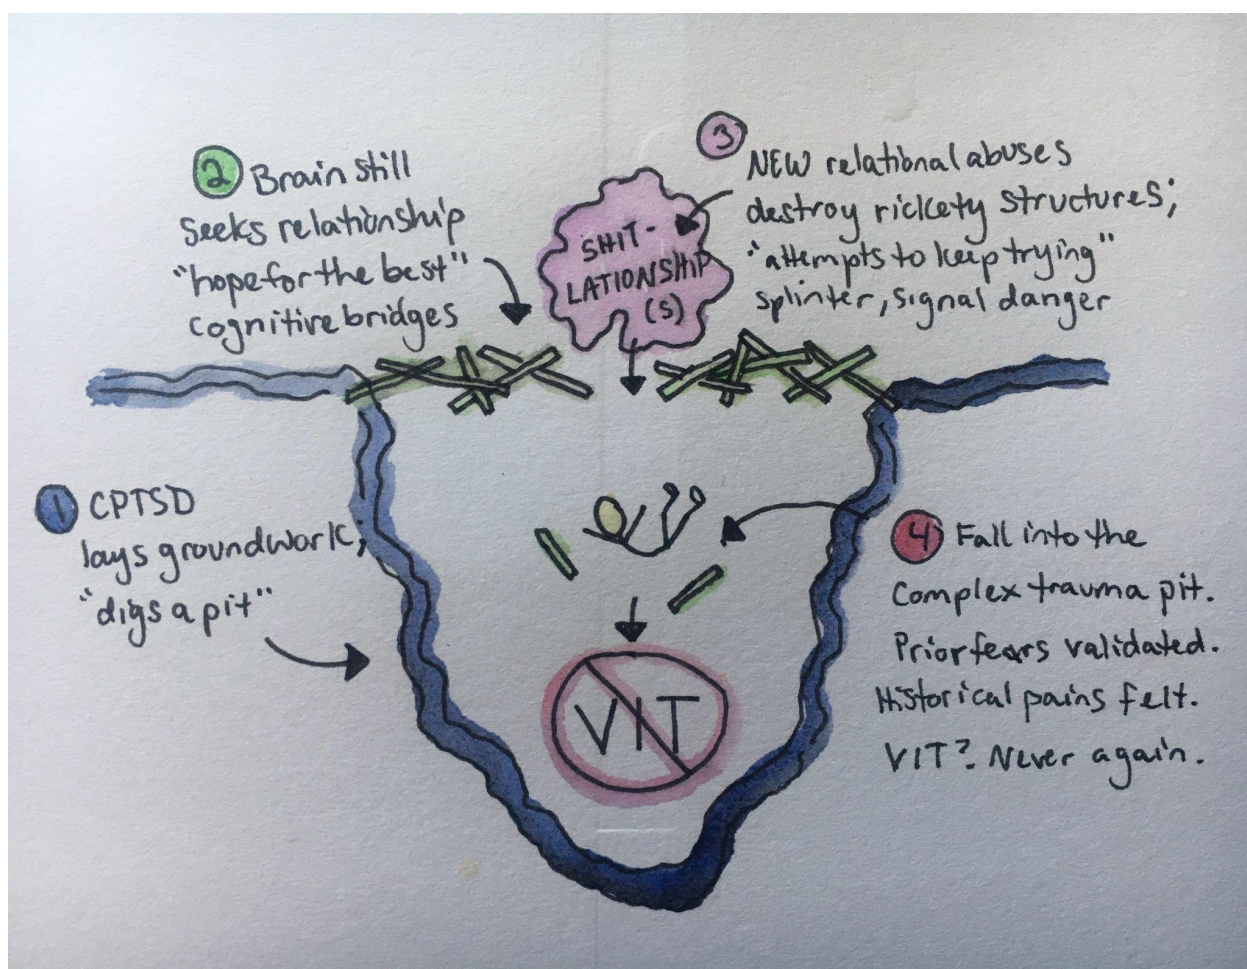 1 CPTSD
lays groundwork;
"digs a pit"
2 Brain still
seeks relationship
"hope for the best"
cognitive bridges
SHIT-
LATIONSHIP
(S)
3
NEW relational abuses
destroy rickety structures;
"attempts to keep trying"
splinter, signal danger
4 Fall into the
complex trauma pit.
Prior fears validated.
Historical pains felt.
VIT? Never again.
VIT